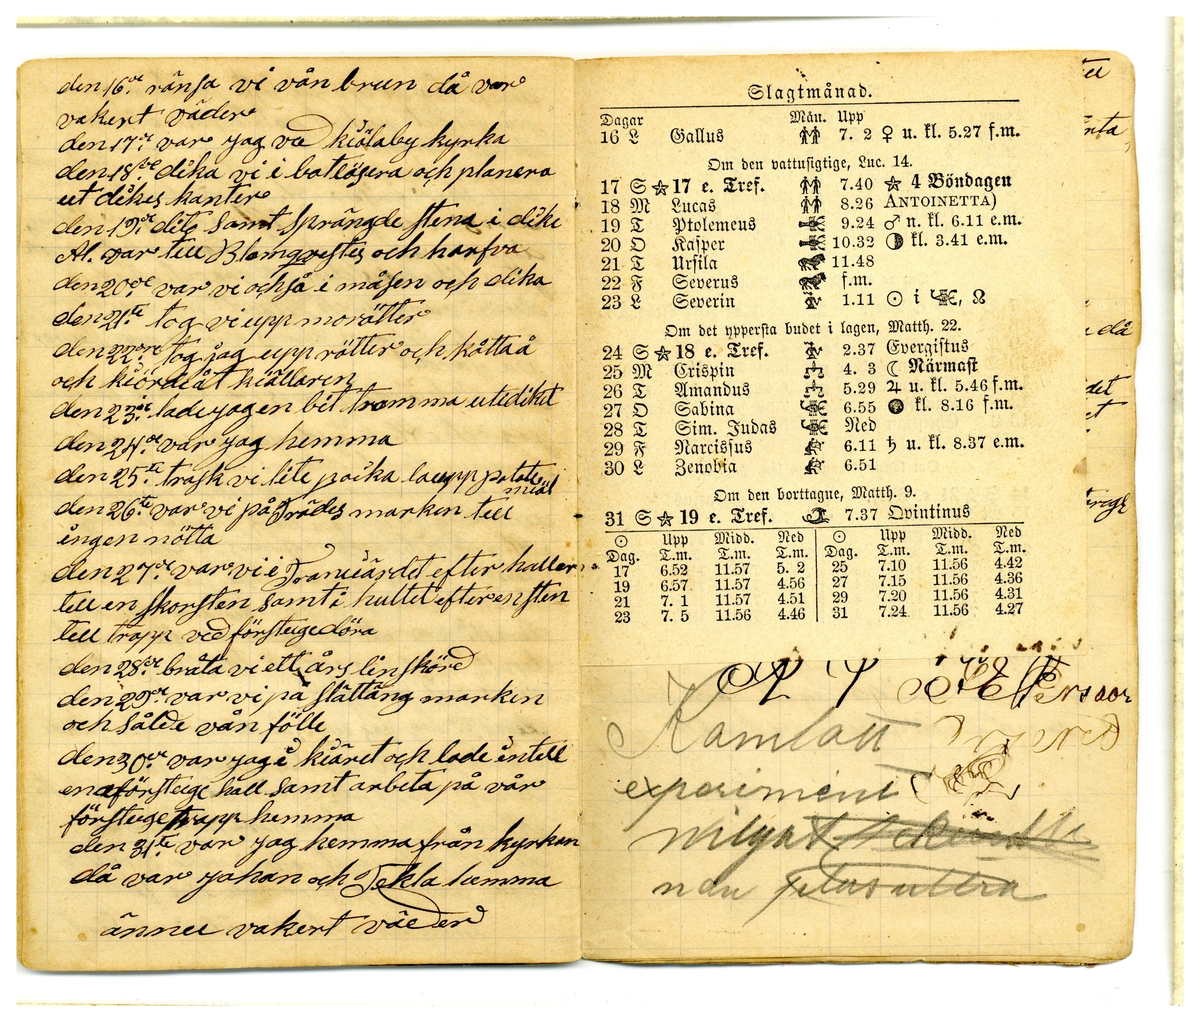 den 16de ränsa vi vån brun då var
vakert väder
den 17de var jag va kiölaby kyrka
den 18de dika vi i batlösera och planera
ut dikes kanter
den 19de dito samt sprängde stena i dike
Al. var till Blomqvistes och harfva
den 20de var vi också i måsen och dika
den 21ta tog vi upp morötter
den 22dre tog jag upp rötter och kåttaå
och kiörde åt kiällaren
den 23de lade jag en bit tromma utedikit
den 24de var jag hemma
den 25te trask vi lite påcka la upp potates
miöl
den 26te var vi på Trädes marken till
ingen nötta
den 27de var vi i Tranciärdet efter haller
till en skorsten samt i hultet efter en sten
till trapp ved förstugedöra
den 28de bråta vi ett års linskörd
den 29de var vi på slättäng marken
och sålde vån fölle
den 30de var jag i kiäret och lade intill
en förstuge hall samt arbeta på vår
förstuge trapp hemma
den 31te var jag hemma från kyrkan
då var Johan och Tekla hemma
ännu vakert väder
Slagtmånad.
Dagar Mån. Upp
16 L Gallus 7. 2 ♀ u. kl. 5.27 f.m.
Om den vattusigtige, Luc. 14.
17 S 17 e. Tref. 7.40 4 Böndagen
18 M Lucas 8.26 ANTOINETTA)
19 T Ptolemeus 9.24 ♂ n. kl. 6.11 e.m.
20 O Kasper 10.32 kl. 3.41 e.m.
21 T Ursila 11.48
22 F Severus f.m.
23 L Severin 1.11 ☉ i , ☊
Om det yppersta budet i lagen, Matth. 22.
24 S 18 e. Tref. 2.37 Evergistus
25 M Crispin 4. 3 ☾ Närmast
26 T Amandus 5.29 ♃ u. kl. 5.46 f.m.
27 O Sabina 6.55 kl. 8.16 f.m.
28 T Sim. Judas Ned
29 F Narcissus 6.11 ♄ u. kl. 8.37 e.m.
30 L Zenobia 6.51
Om den borttagne, Matth. 9.
31 S 19 e. Tref. 7.37 Qvintinus
☉ Upp Midd. Ned ☉ Upp Midd. Ned
Dag. T.m. T.m. T.m. Dag. T.m. T.m. T.m.
17 6.52 11.57 5. 2 25 7.10 11.56 4.42
19 6.57 11.57 4.56 27 7.15 11.56 4.36
21 7. 1 11.57 4.51 29 7.20 11.56 4.31
23 7. 5 11.56 4.46 31 7.24 11.56 4.27
Kamlatt
experiment